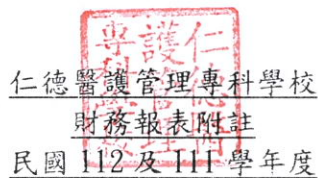 仁德醫護管理專科學校
財務報表附註
民國 112 及 111 學年度